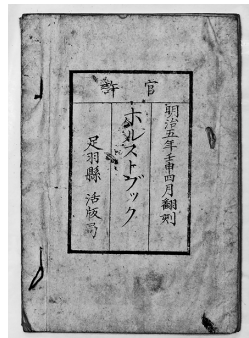 官許
明治五年壬申四月翻刻
ホルストブック
足羽縣 活版局